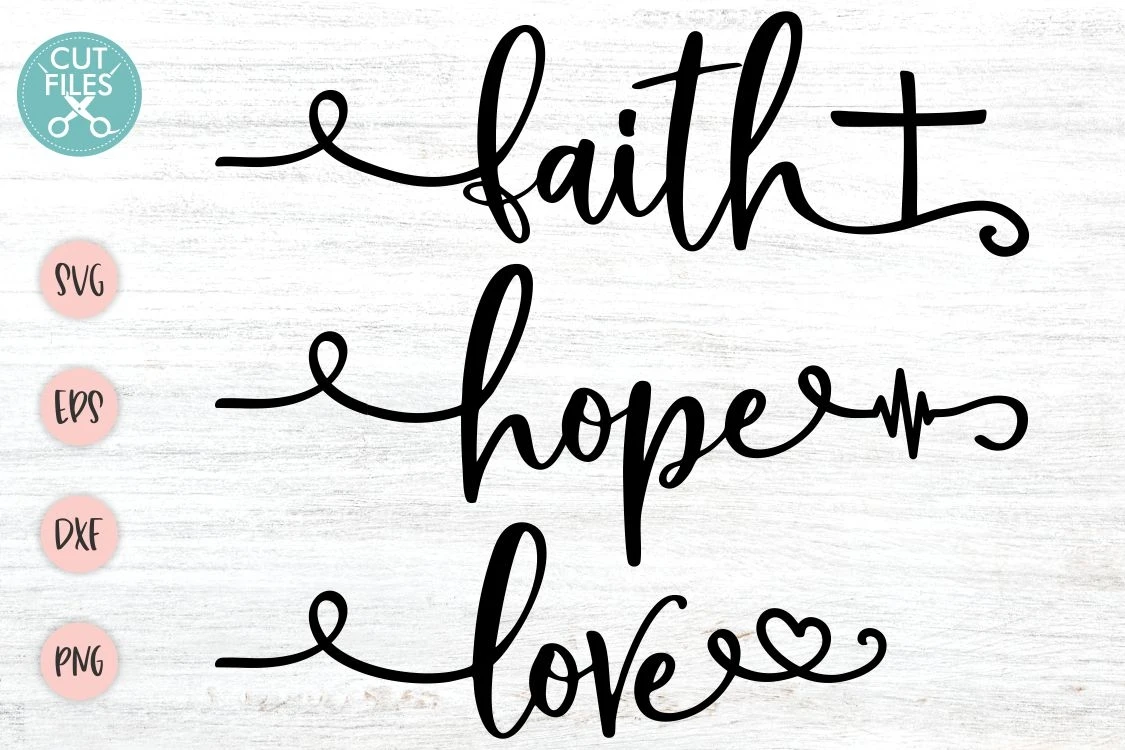 CUT
FILES
faith
SVG
hope
EPS
DXF
love
PNG